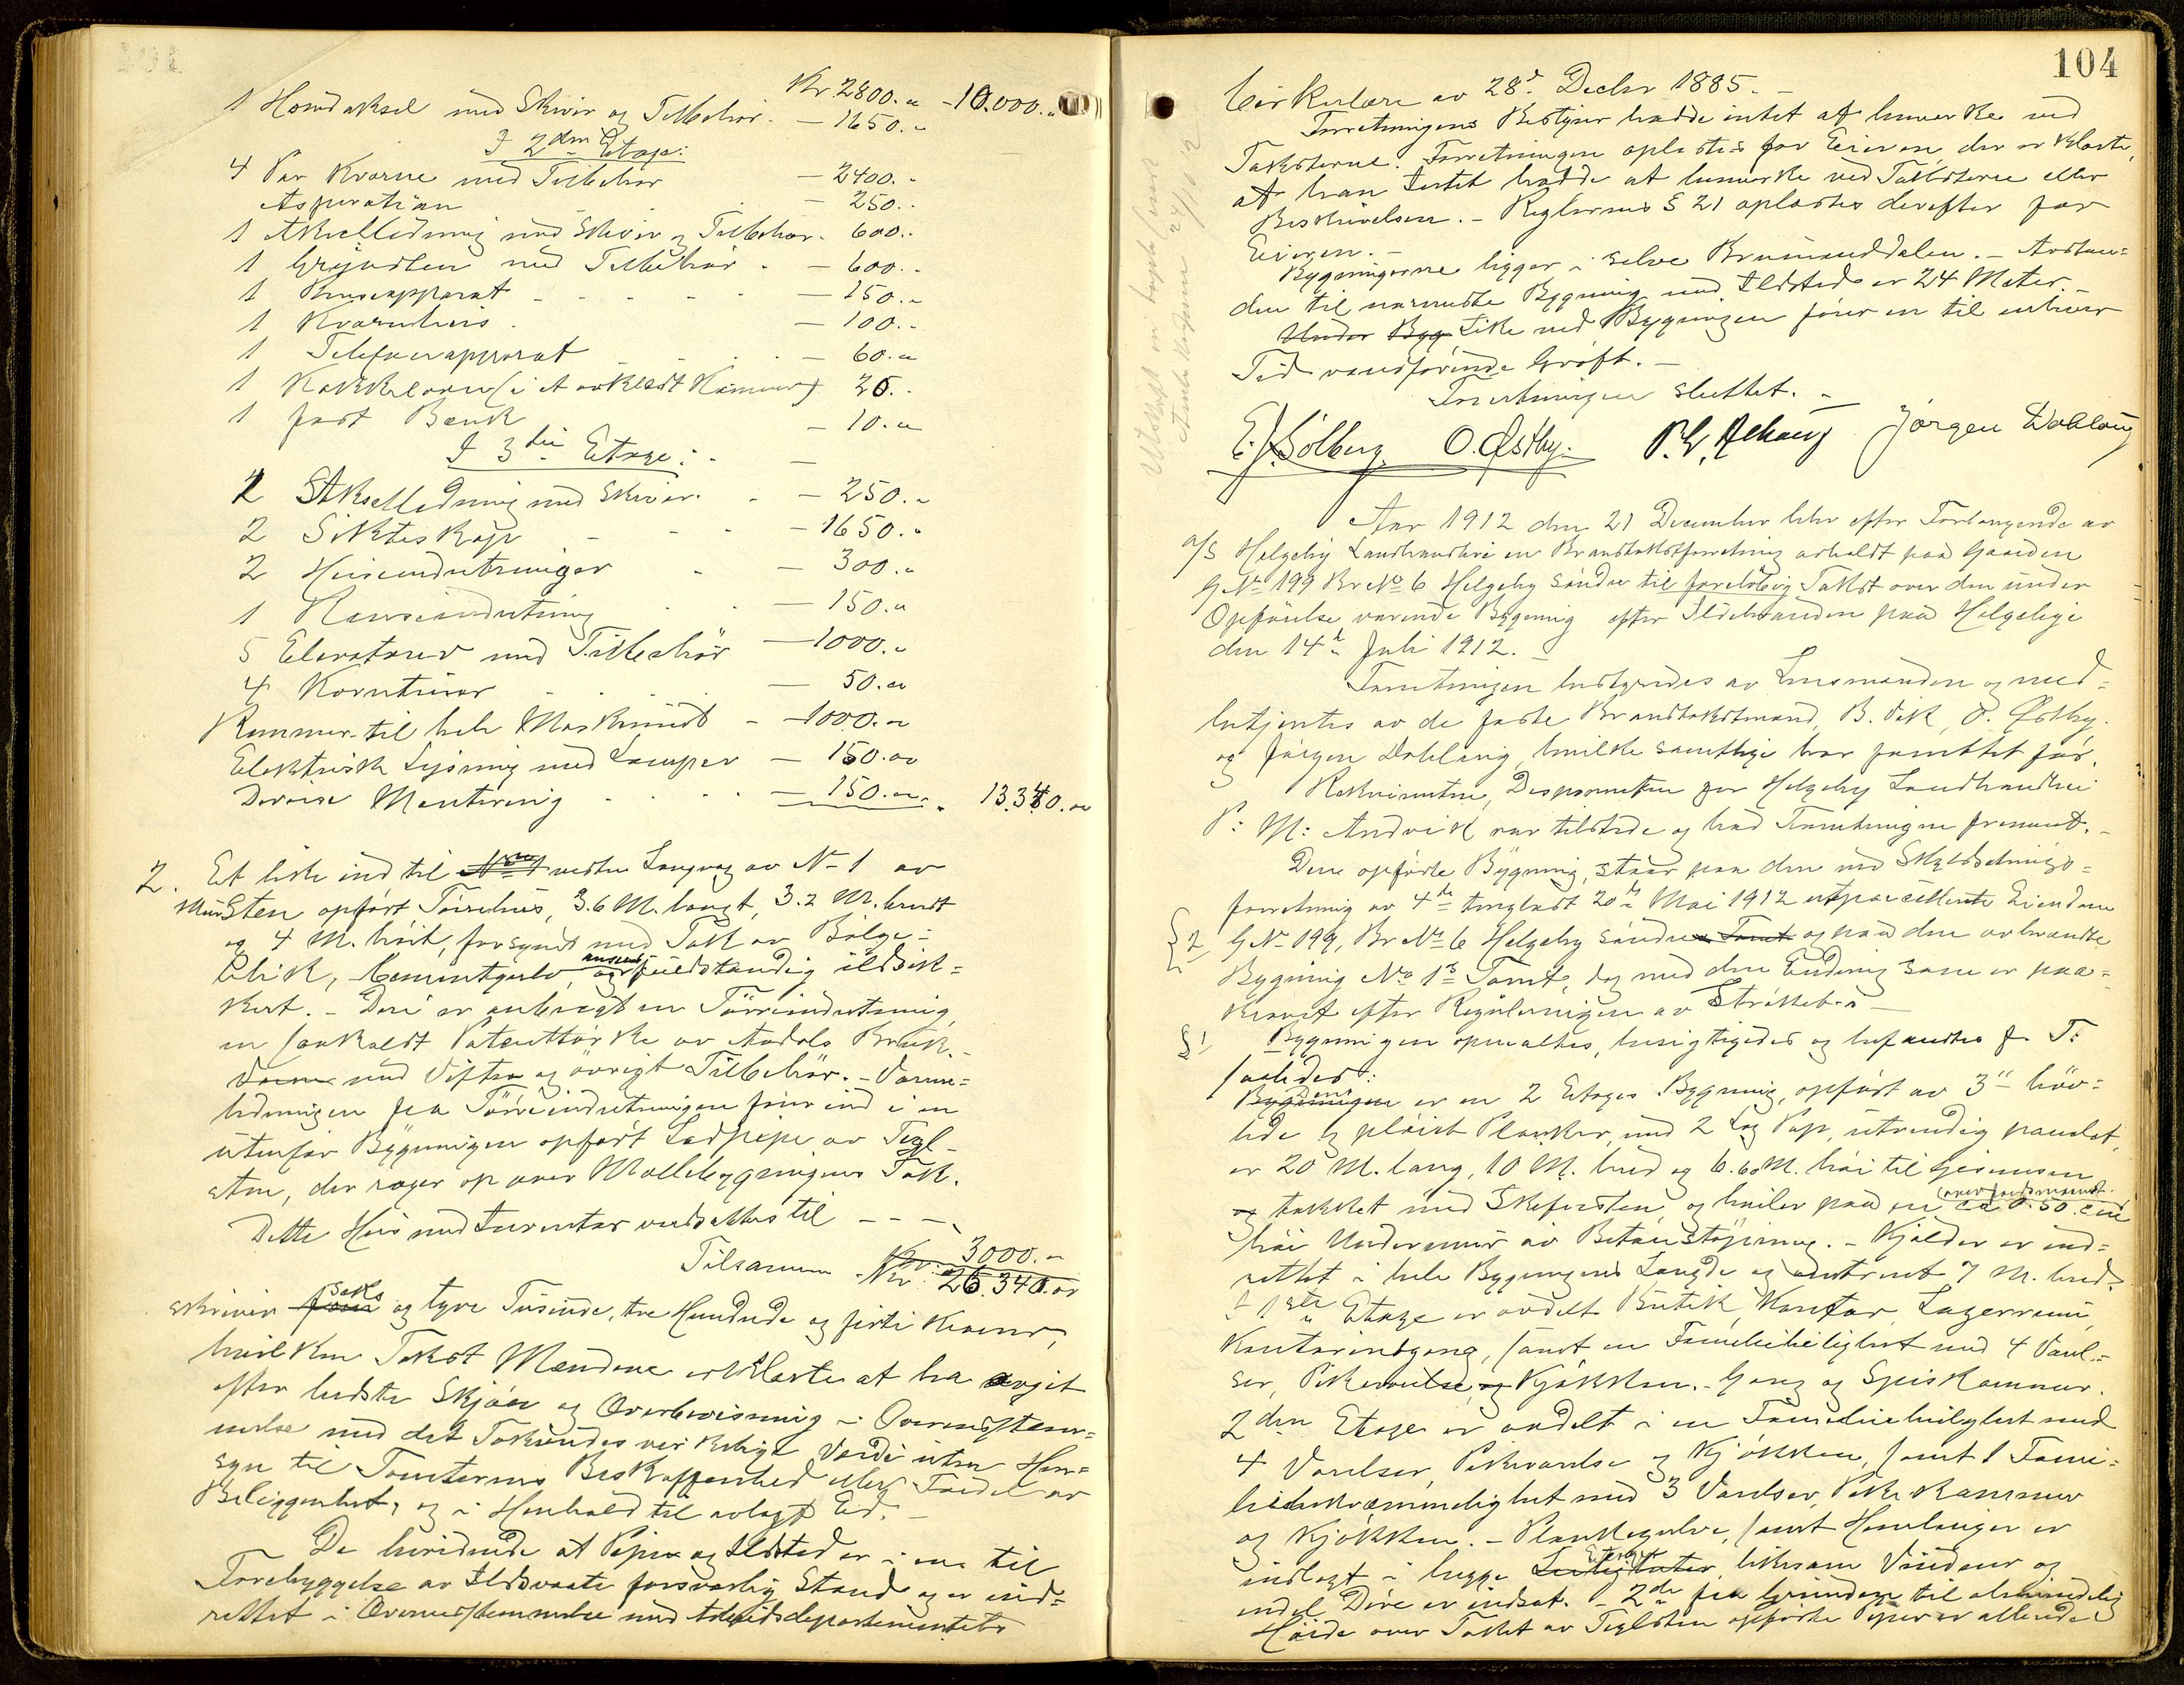 Kr. 2800.„ - 10.000.„
1 Hovedaksel med Skiver og Tilbehør. — 1650.„
I 2den Etage:
4 Par Kværne med Tilbehør — 2400.„
Aspiration — 250.„
1 Akselledning med Skiver og Tilbehør. 600.„
1 Grynsten med Tilbehør. — 600.„
1 Renseapparat — 150.„
1 Kværnheis. — 100.„
1 Telefonapparat — 60.„
1 Kakkelovn (i et avklædt Kammer) 25.„
1 fast Bænk — 10.„
I 3die Etage:
1 Akselledning med Skiver. — 250.„
2 Sikteskap — 1650.„
2 Heiseindretninger — 300.„
1 Renseindretning — 150.„
5 Elevatorer med Tilbehør — 1000.„
4 Korntuer — 50.„
Remmer til hele Maskineriet — 1000.„
Elektrisk Lysning med Lamper — 150.„
Diverse Montering — 150.„ „ 13.340.„
2. Et like ind til vestre Langvæg av No 1 av
Mursten opført Tørrehus, 3.6 M. langt, 3.2 M. bredt
og 4 M. høit, forsynet med Tak av Bølge-
blik, Cementgulv, og ansees fuldstændig ildsik-
kert. - Deri er anbragt en Tørreindretning,
en saakaldt Patenttørke av Aadals Bruk.
med Vifter og øvrigt Tilbehør. - Varme-
ledningen fra Tørreindretningen fører ind i en
utenfor Bygningen opført Ladpipe av Tegl-
sten, der rager op over Møllebygningens Tak.
Dette Hus med Inventar verdsattes til - - -
3000.„
Tilsammen Kr. 26.340.„
skriver seks og tyve Tusinde, tre Hundrede og firti Kroner,
hvilken Takst Mændene erklærte at ha avgit
efter bedste Skjøn og Overbevisning i Overensstem-
melse med det Taksertes virkelige Værdi uten Hen-
syn til Tomternes Beskaffenhed eller Fordel av
Beliggenhet, og i Henhold til avlagt Ed. -
De bevidnede at Piper og Ildsted er i en til
Forebyggelse av Ildsvaade forsvarlig Stand og er ind-
rettet i Overensstemmelse med Arbeidsdepartementets
104
Cirkulære av 28d. Decbr 1885. -
Forretningens Bestyrer hadde intet at bemerke ved
Taksterne. Forretningen oplæstes for Eieren der erklærte,
at han Intet hadde at bemerke ved Taksterne eller
Beskrivelsen. - Reglernes § 21 oplæstes derefter for
Eieren. -
Bygningerne ligger i selve Brumunddalen. - Avstan-
den til nærmeste Bygning med Ildsted er 24 Meter. -
Under Byg Like ved Bygningen fører en til enhver
Tid vandførende Grøft. -
Forretningen sluttet. -
E. J. Solberg. O. Østby. Jørgen Dæhling
Aar 1912 den 21 December blev efter Forlangende av
a/s Helgeby Landhandleri en Brandtakstforretning avholdt paa Gaarden
G.No 199 Br.No 6 Helgeby søndre til foreløbig Takst over den under
Opførelse værende Bygning efter Ildebranden paa Helgeby
den 14de Juli 1912. -
Forretningen bestyredes av Lensmanden og med-
betjentes av de faste Brandtakstmænd, B. Vik, O. Østby.
og Jørgen Dæhling, hvilke samtlige har forrettet før.
Rekvirenten, Disponenten for Helgeby Landhandleri
P. M. Andvik var tilstede og bad Forretningen fremmet. -
Den opførte Bygning, staar paa den ved Skyldsetnings-
forretning av 4de tinglæst 20de Mai 1912 utparcellerte Eiendom
G.No 199, Br.No 6 Helgeby søndre Tomt og paa den avbrændte
Bygning No 1s Tomt, dog med den Endring som er paa-
krævet efter Reguleringen av Strøket. -
§1 Bygningen opmaaltes, besigtigedes og befandtes f. T.
saaledes:
Bygningen Den er en 2 Etages Bygning, opført av 3" høv-
lede og pløiet Planker, med 2 Lag Pap, utvendig panelet,
er 20 M. lang, 10 M. bred og 6.60 M. høi til Gesimsen
tækket med Skifersten og hviler paa en ca 0.50 cm
høi Undermur av Betonstøpning. - Kjælder er ind-
rettet i hele Bygningens Længde og omtrent 7 M. bred.
I 1ste Etage er avdelt Butik, Kontor, Lagerrum,
Kontorindgang, samt en Familieleilighet med 4 Værel-
ser, Pikeværelse, og Kjøkken. - Gang og Spiskammer.
2den Etage er avdelt i en Familieleilighet med
4 Værelser, Pikeværelse og Kjøkken, samt 1 Fami-
liebekvemmelighet med 3 Værelser, Pikekammer
og Kjøkken. - Plankegulve, samt Himlinger er
indlagt i begge Leiligheter Etager, likesom Vinduer og
endel Døre er indsat. - 2de fra Grunden til almindelig
Høide over Taket av Teglsten opførte Piper er allerede